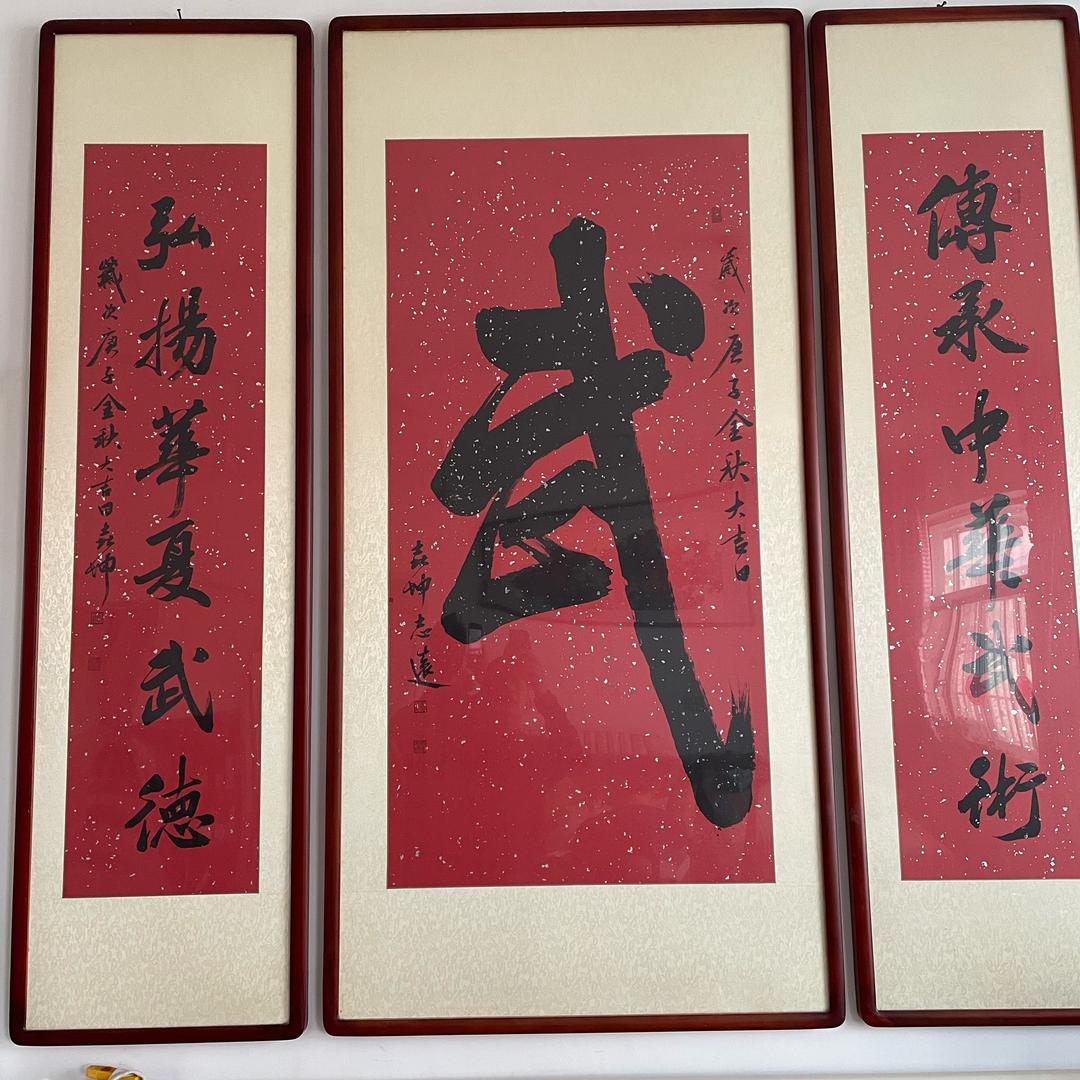 傳承中華武術
歲次庚子金秋大吉日
武
志遠
弘揚華夏武德
歲次庚子金秋大吉日